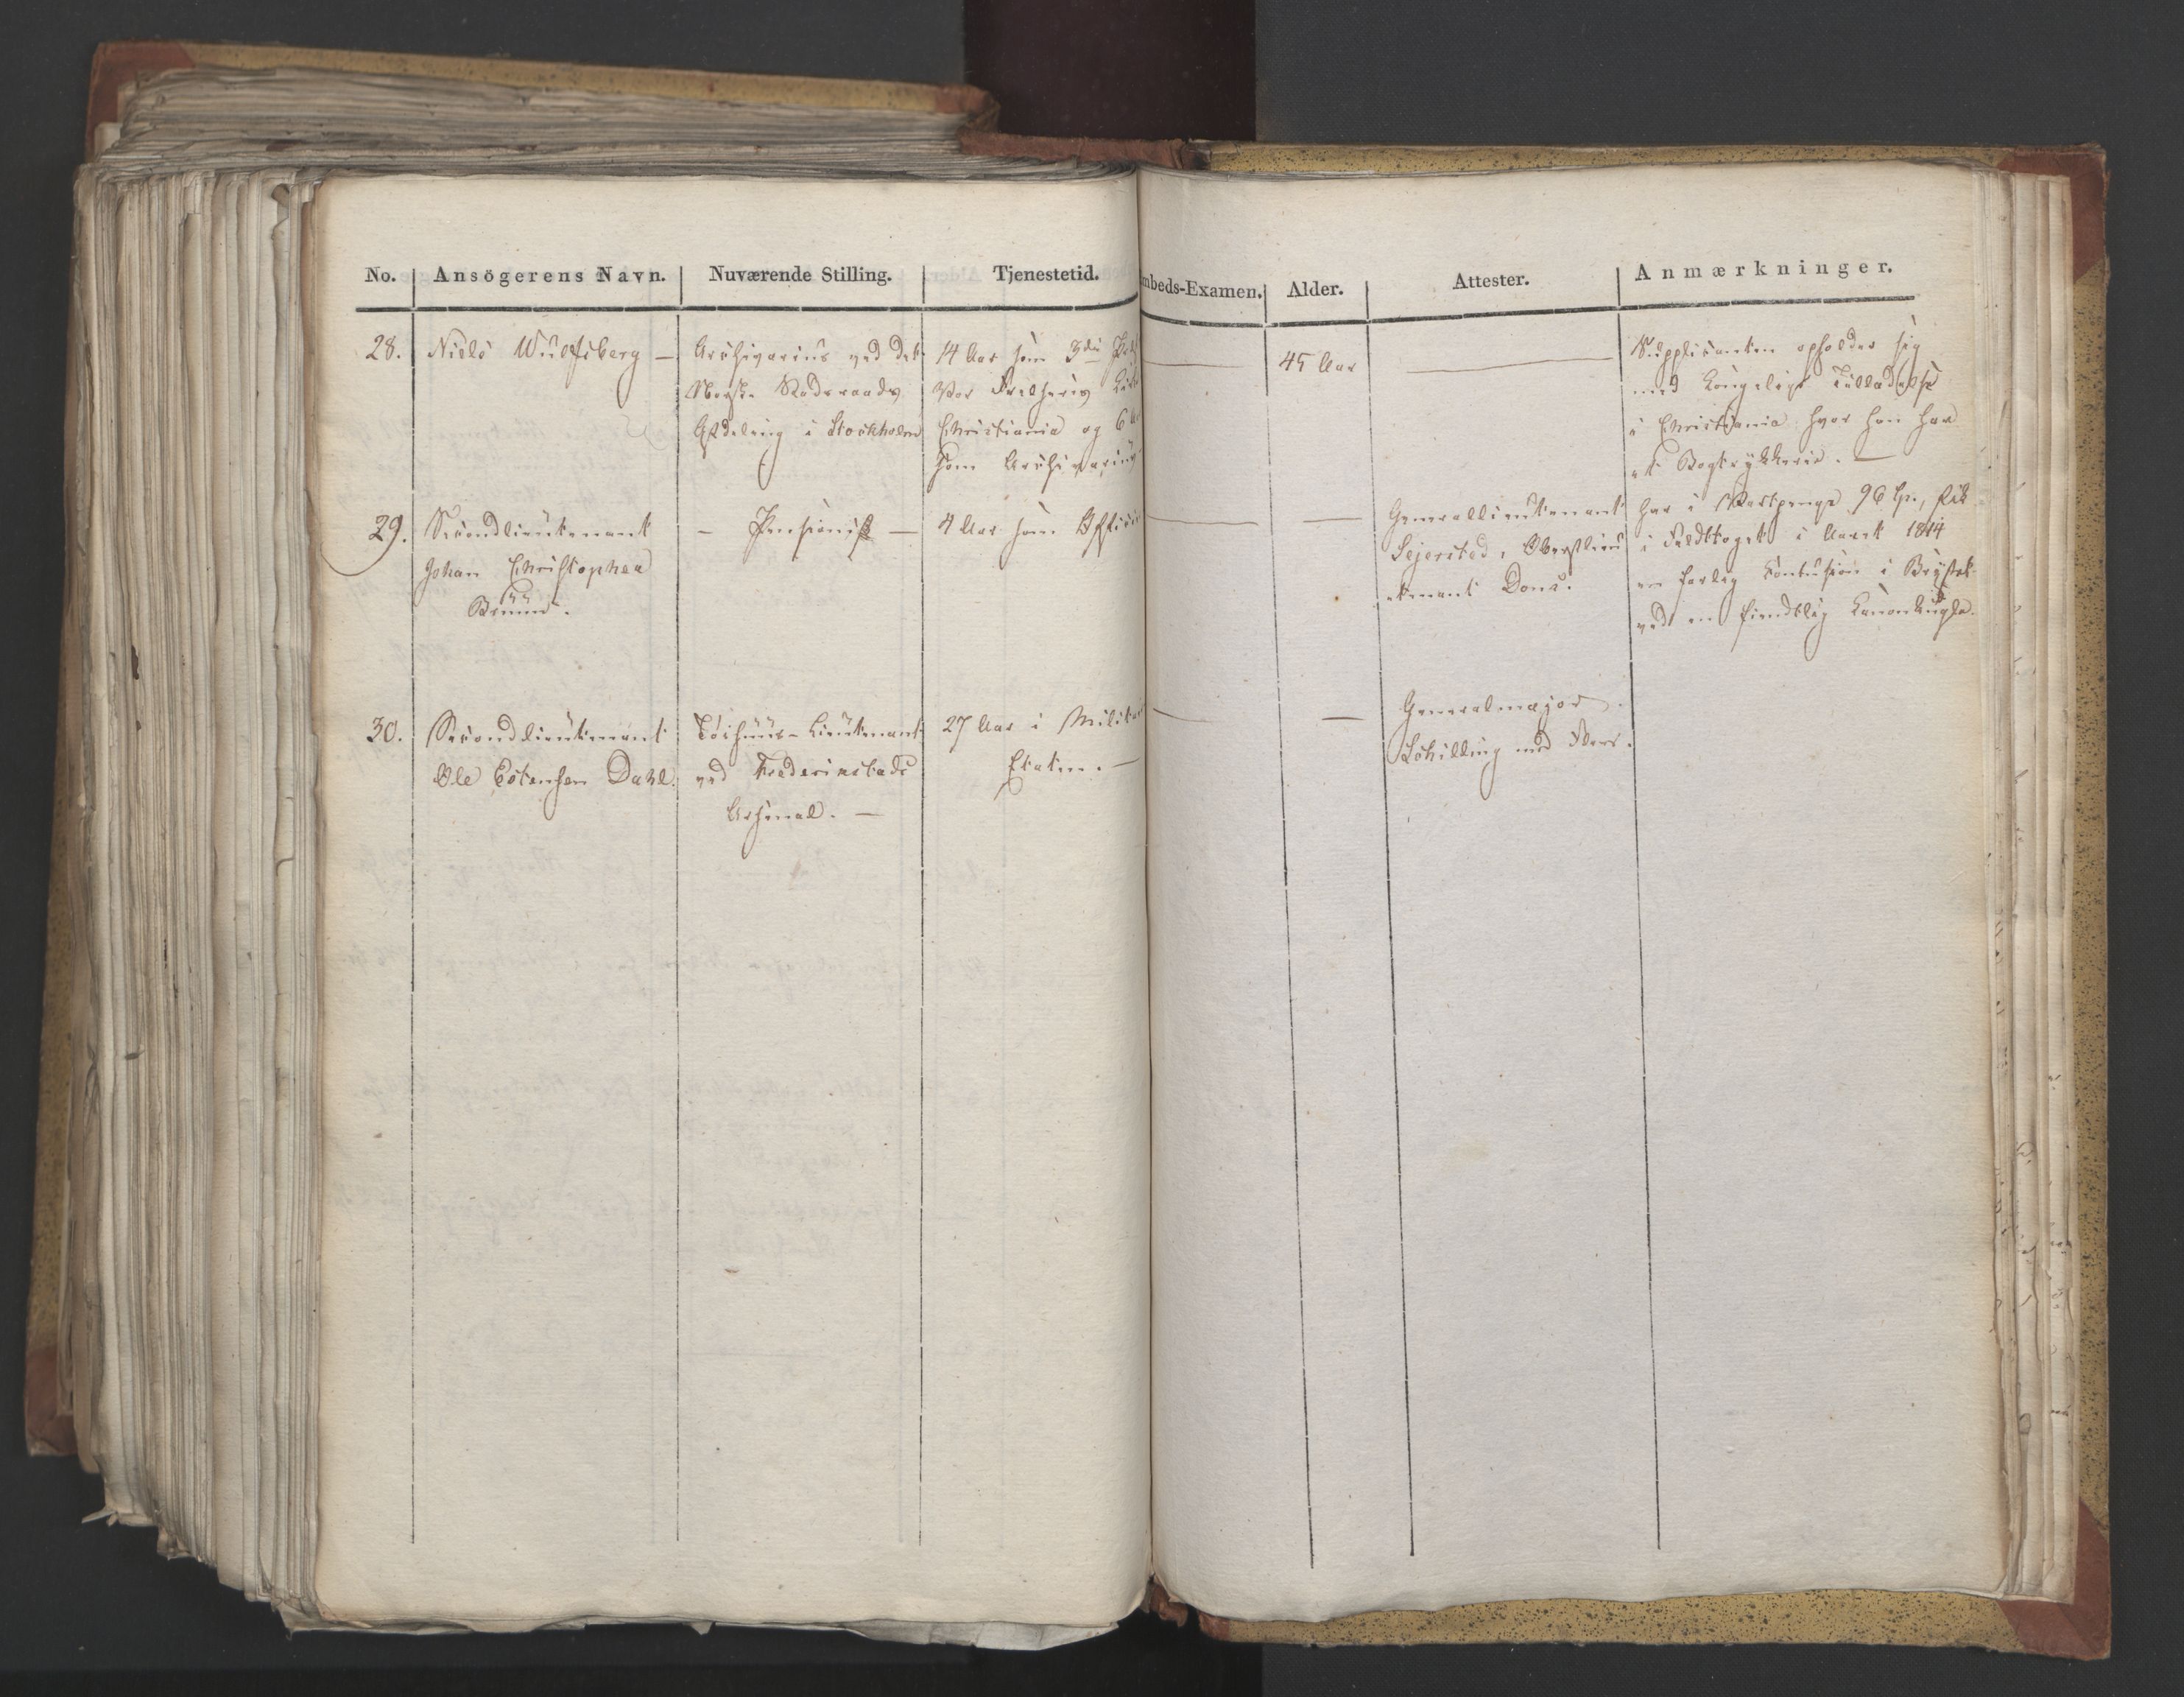 No. Ansögerens Navn. Nuværende Stilling. Tjenestetid. mbeds-Examen. Alder. Attester. Anmærkninger.
28. Niels Wulfsberg —
Archivarius ved det
Norske Stadsraads
Afdeling i Stockholm
14 Aar som 3die
Vor Frelsers
Christiania og 6
som Archivarius
—
45 Aar
—
Supplicanten opholder sig
med Kongeligt Tilladelse
i Christiania hvor han har
et Bogtrykkerie. —
29. Secondlieutenant
Johan Christopher
Bruun.
— Pensionist —
4 Aar som Officier
—
—
Generallieutenant
Sejersted, Oberstlieu
tenant Dons.
har i Vartpenge 96 Sp., fik
i Feldttoget i Aaret 1814
en farlig Contusion i Brystet
ved en fiendtlig Kanonkugle.
30. Secondlieutenant
Ole Estensen Dahl.
Töihuus-Lieutenant
ved Frederikstads
Arsenal. —
27 Aar i Militair
Etaten. —
—
—
Generalmajor
Schilling med Fleer.